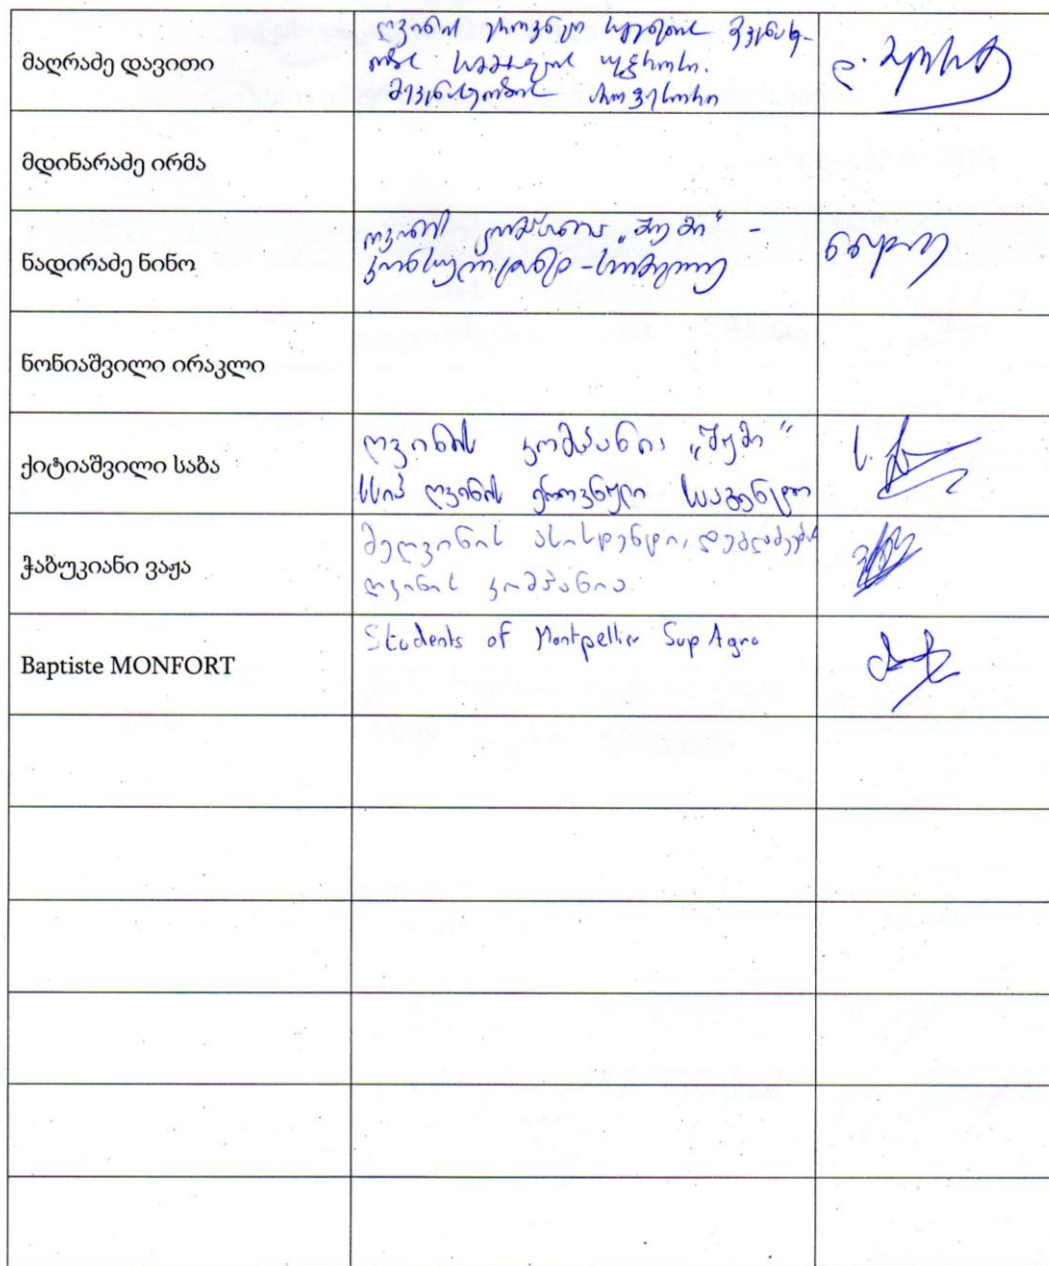 მაღრაძე დავითი
ღვინის ეროვნული სააგენტოს მევენახე-
ობის სამმართველოს უფროსი.
მევენახეობის პროფესორი
მდინარაძე ირმა
ნადირაძე ნინო
ღვინის კომპანია „შუმი“ -
კონსულტანტ - სომელიე
ნონიაშვილი ირაკლი
ქიტიაშვილი საბა
ღვინის კომპანია „შუმი“
სსიპ ღვინის ეროვნული სააგენტო
ჭაბუკიანი ვაჟა
მეღვინის ასისტენტი,
ღვინის კომპანია
Baptiste MONFORT
Students of Montpellier Sup Agro